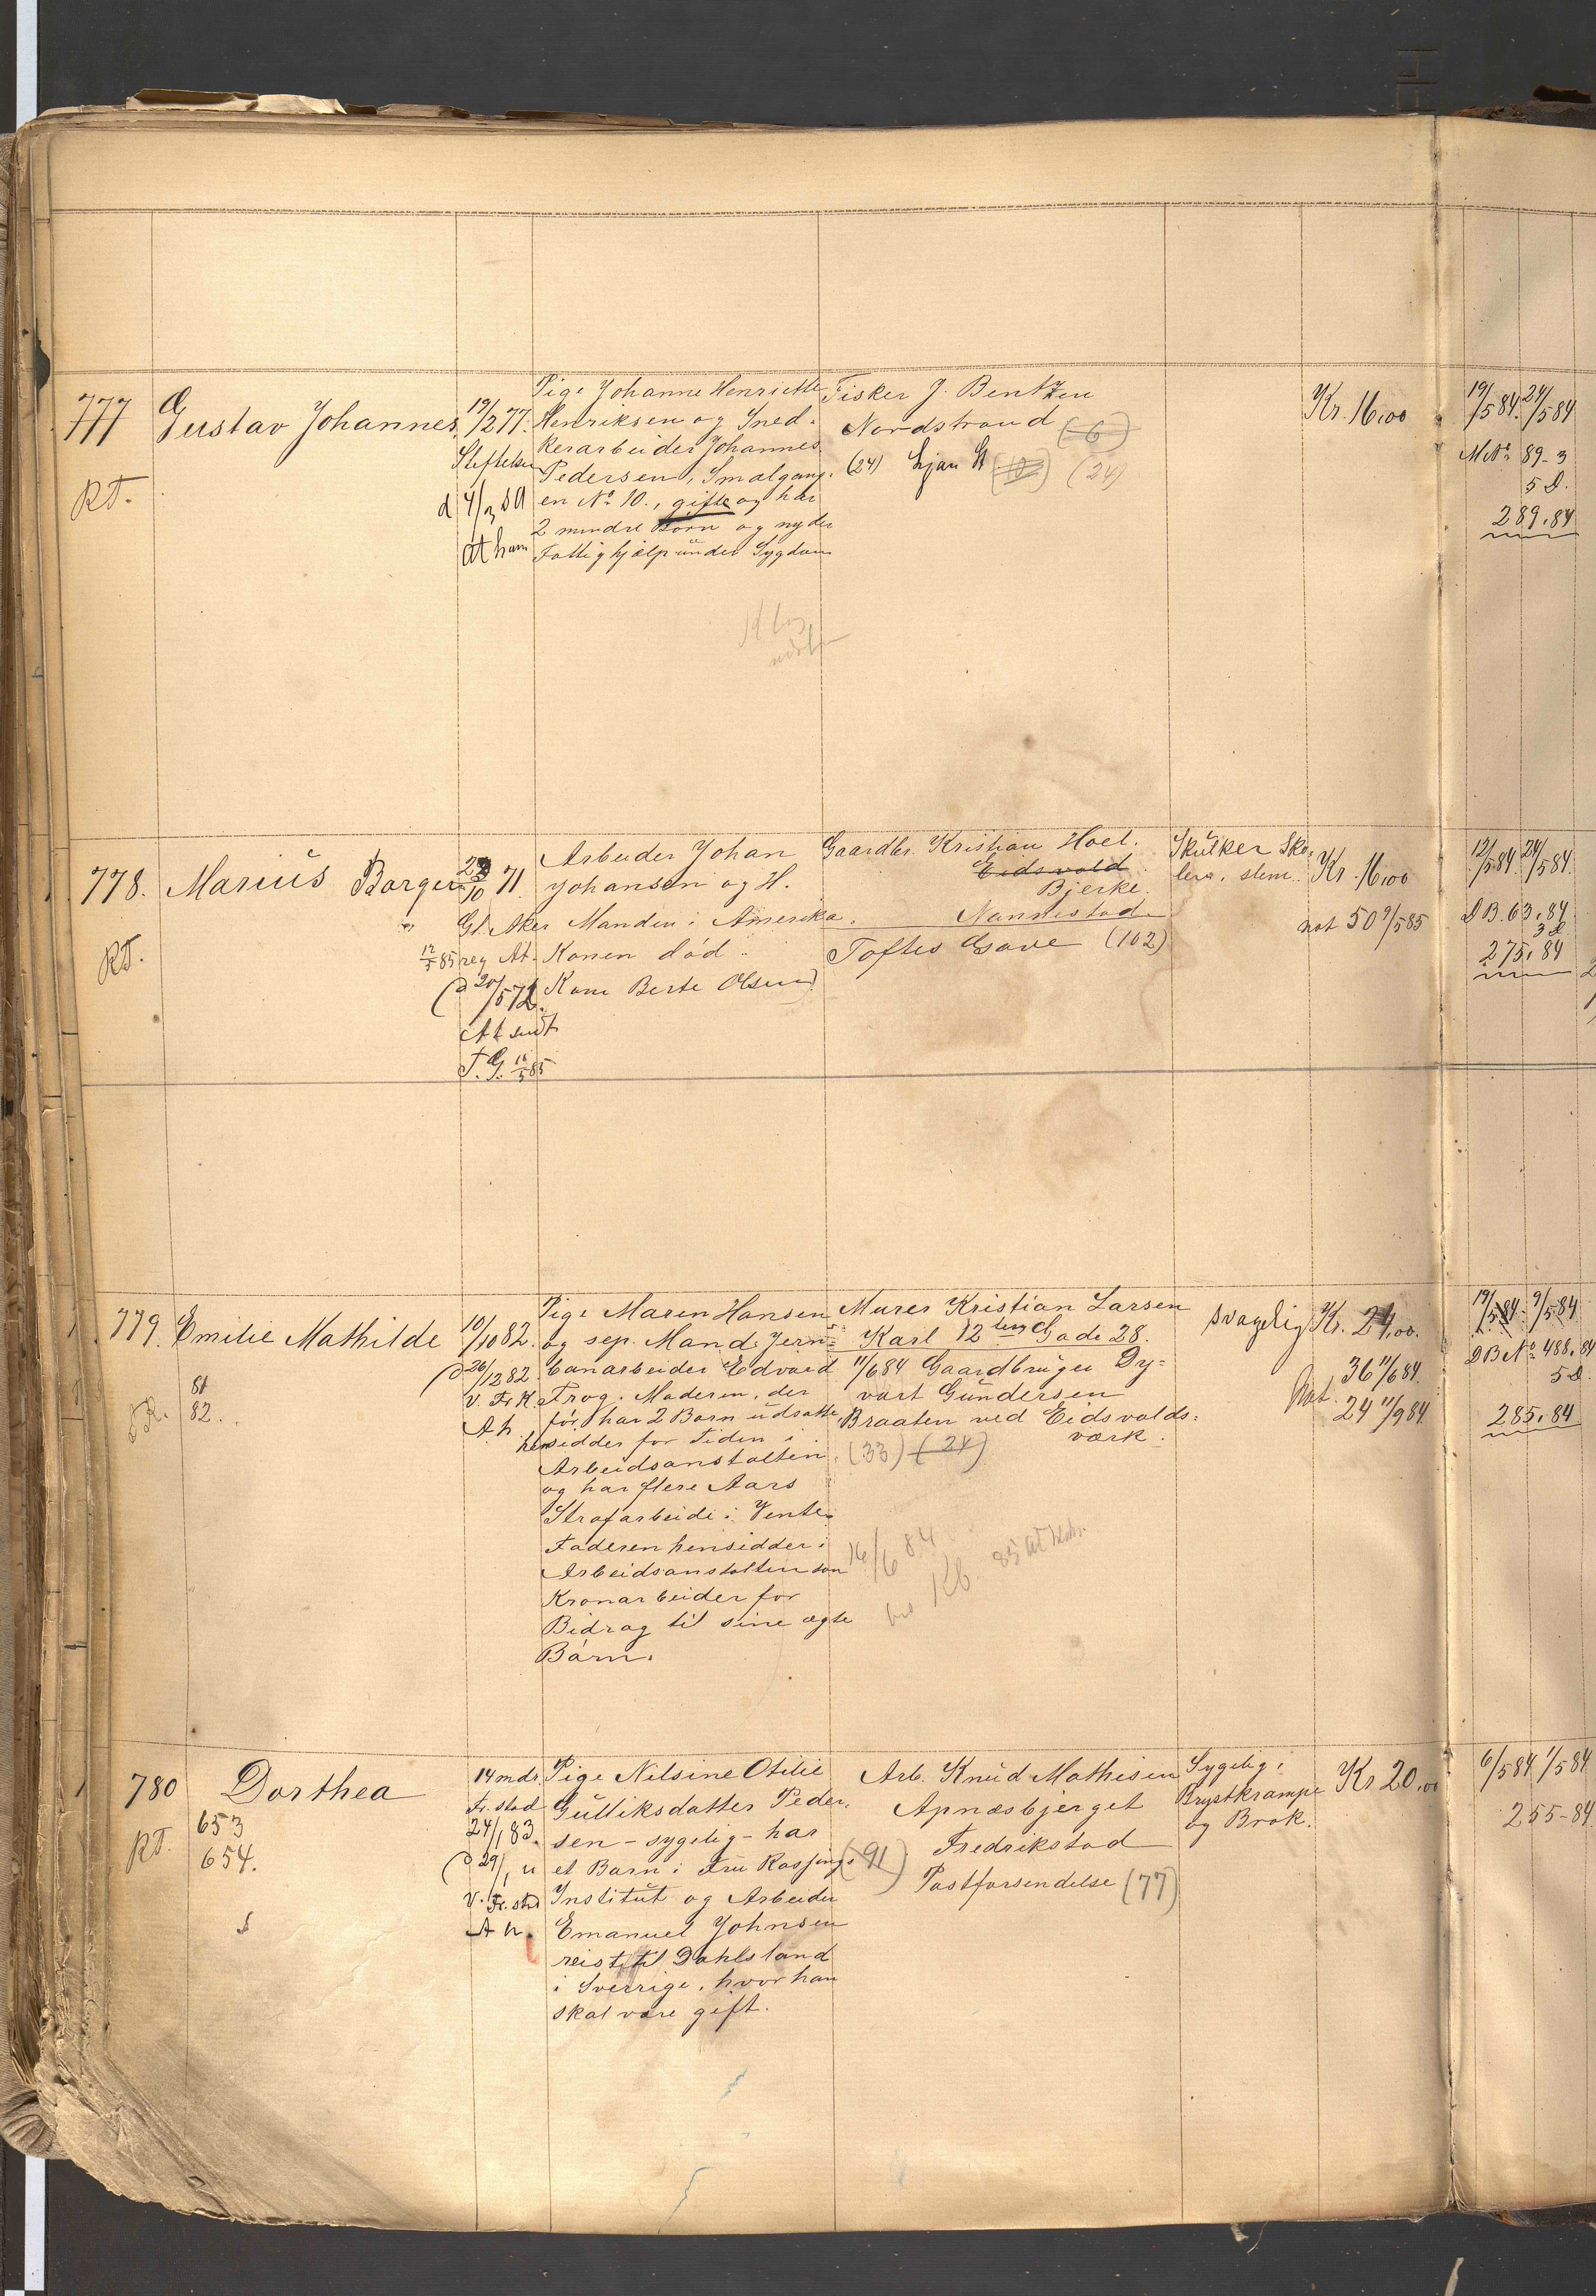 777
Gustav Johannes.
19/2 77.
Stiftelsen
d 4/3 80
At ham
RT.
Pige Johanne Henriette
Henriksen og Sned-
kerarbeider Johannes
Pedersen, Smalgang-
en No 10., gifte og har
2 mindre Børn og nyder
Fattighjælp under Sygdom
Fisker J. Bentzen
Nordstrand (6)
(24) Ljan St (10) (24)
Kr. 16,00
19/5 84. 24/5 84
M No 89-3
5 D.
289.84
778.
Marius Borger
23/10 71.
Gl. Aker
12/5 85 reg At.
(d 20/5 72.
At sendt
T.G. 12/5 85
RT.
Arbeider Johan
Johansen og H.
Manden i Amerika.
Konen død.
Kone Berte Olsen)
Gaardbr. Kristian Hoel.
Eidsvold
Bjerke.
Nannestad
Toftes Gave (102)
Skulker Sko-
len, slem.
Kr. 16,00
not 50 9/5 85
12/5 84. 24/5 84.
D B. 63.84
3 D
275.84
779.
Emilie Mathilde
10/10 82.
(d 26/12 82.
v. Fr K.
A h.
81
82.
Pige Maren Hansen
og sep. Mand, Jern-
banarbeider Edvard
Frog. Moderen, der
før har 2 Børn udsatte,
hensidder for Tiden i
Arbeidsanstalten.
og har flere Aars
Strafarbeide i Vente.
Faderen hensidder i
Arbeidsanstalten som
Kronarbeider for
Bidrag til sine ægte
Børn.
Murer Kristian Larsen
Karl 12 tes Gade 28.
11/6 84 Gaardbruger Dy-
vart Gundersen
Braaten ved Eidsvolds-
værk.
(33) (24)
16/6 84
Svagelig
Kr. 24,00.
36 11/6 84.
Not.
24 11/9 84
19/5 84. 9/5 84
D B No 488.84
5 D.
285.84
780
Dorthea
653
654.
RT.
14 mdr
Fr. stad
24/1 83.
(d 29/1 u
v. Fr. stad
A h.
Pige Nilsine Otilie
Gulliksdatter Peder-
sen - sygelig - har
et Barn i Fru Rosfings
Institut og Arbeider
Emanuel Johnsen
reist til Dahlsland
i Sverrige, hvor han
skal være gift.
Arb. Knud Mathisen
Apnæsbjerget
Fredrikstad
(91)
Postforsendelse (77)
Sygelig,
Brystkrampe
og Brok.
Kr 20,00
6/5 84 1/5 84
255-84